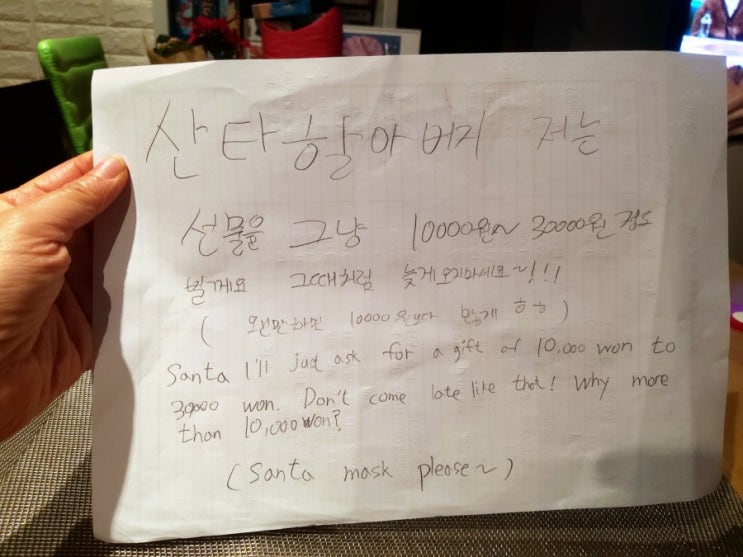 산타할아버지 저는
선물을 그냥 10000원~ 30000원 정도
빌께요 그때처럼 늦게오지마세요~!!!
( 왠만하면 10000원보다 많게 ㅎㅎ )
Santa I'll just ask for a gift of 10,000 won to
30000 won. Don't come late like that! Why more
than 10,000won?
(Santa mask please~)